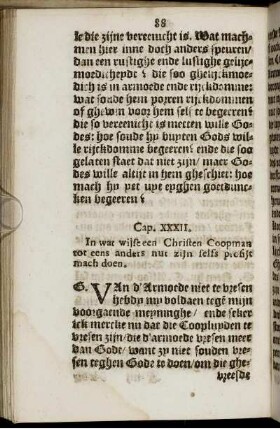 88
le die zijne vereenicht is. Wat mach-
men hier inne doch anders speuren/
dan een rustighe ende lustighe gelijc-
moedicheydt? die soo ghelijckmoe-
dich is in armoede ende rijckdomme:
wat soude hem poȝren rijckdommen
of ghewin voor hem self te begeeren?
die so vereenicht is metten wille Go-
des: hoe soude hy buyten Gods wil-
le rijckdomme begeeren? ende die soo
gelaten staet dat niet zijn/ maer Go-
des wille altijt in hem gheschiet: hoe
mach hy yet uyt eyghen goetdunc-
ken begeeren?
Cap. XXXII.
In wat wijse een Christen Coopman
tot eens anders nut zijn selfs profijt
mach doen.
G. VAn d'Armoede niet te vresen
hebdy my voldaen tegē mijn
voorgaende meyninghe/ ende seker
ick mercke nu dat die Coopluyden te
vresen zijn/ die d'armoede vresen meer
dan Gode/ want zy niet souden vre-
sen teghen Gode te doen/ om die ghe-
vreesde